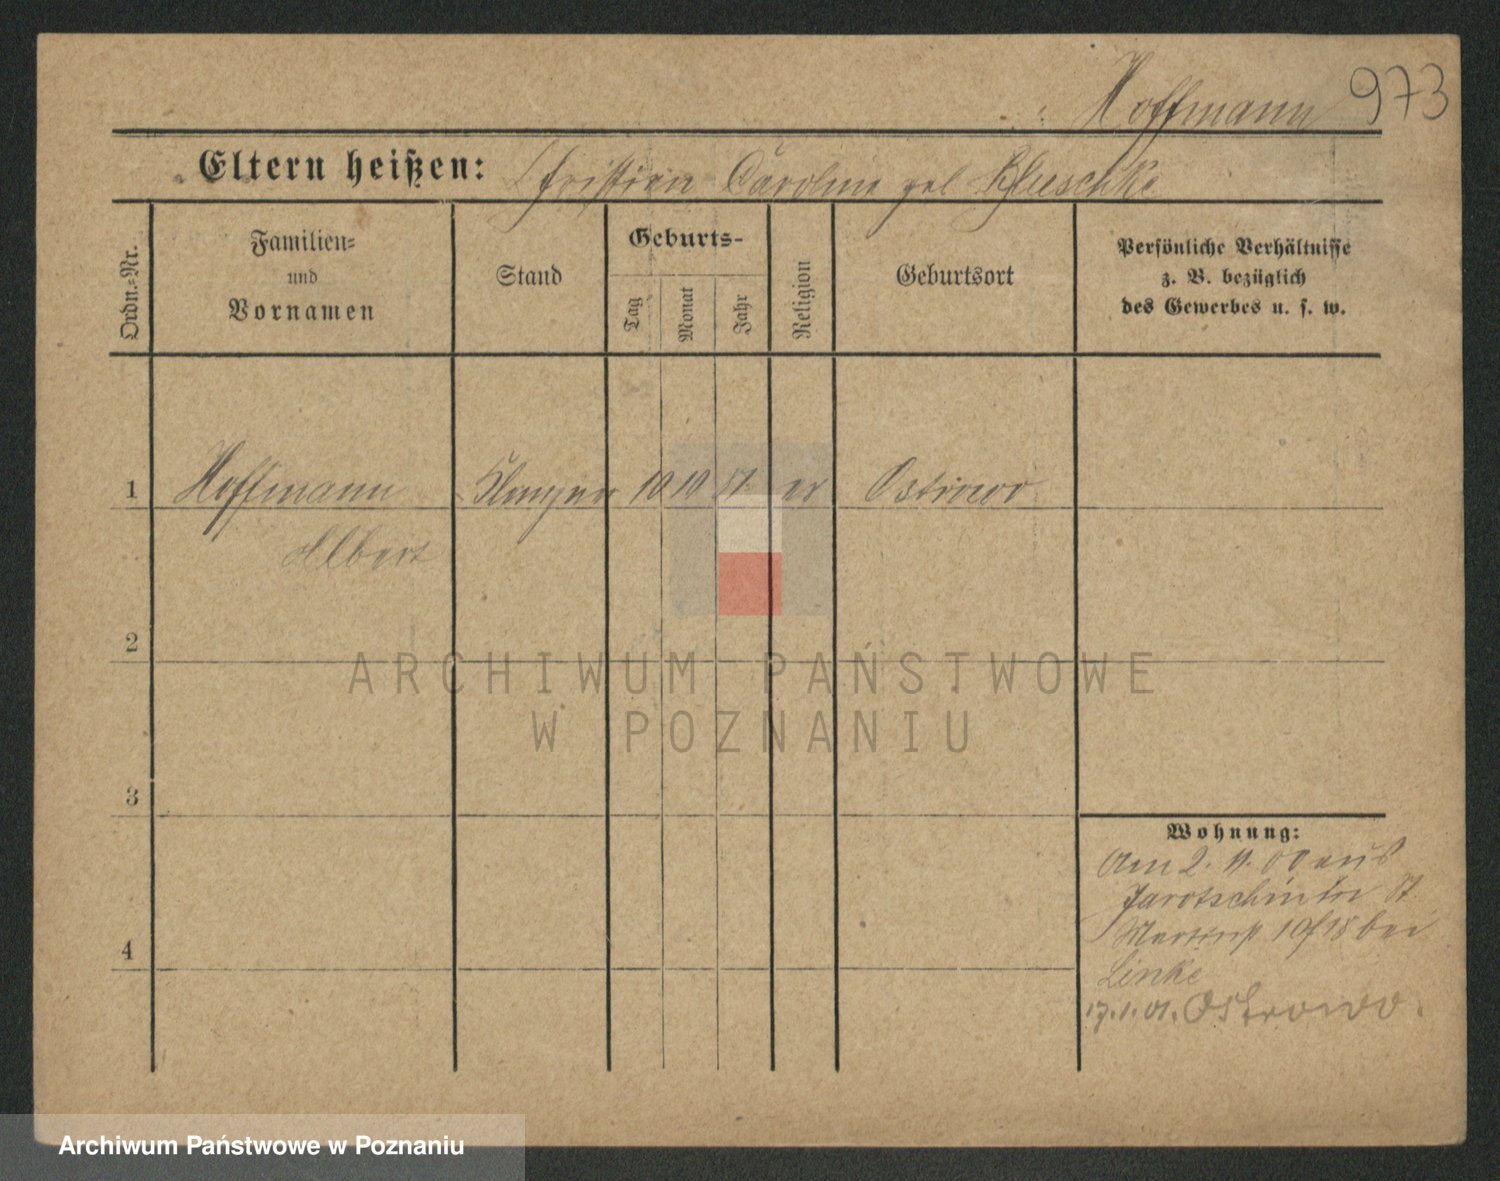 Hoffmann 973
Eltern heißen: Christian Caroline geb
Ordn.=Nr.
Familien=
und
Vornamen
Stand
Geburts-
Tag
Monat
Jahr
Religion
Geburtsort
Persönliche Verhältnisse
z. B. bezüglich
des Gewerbes u. s. w.
1 Hoffmann 10 10 ev Ostrowo
Albert
2
ARCHIWUM PAŃSTWOWE
W POZNANIU
3
Wohnung:
Am 2. 11. 00 aus
Jarotschin
bei
4
Linke
17.1.01. Ostrowo.
Archiwum Państwowe w Poznaniu